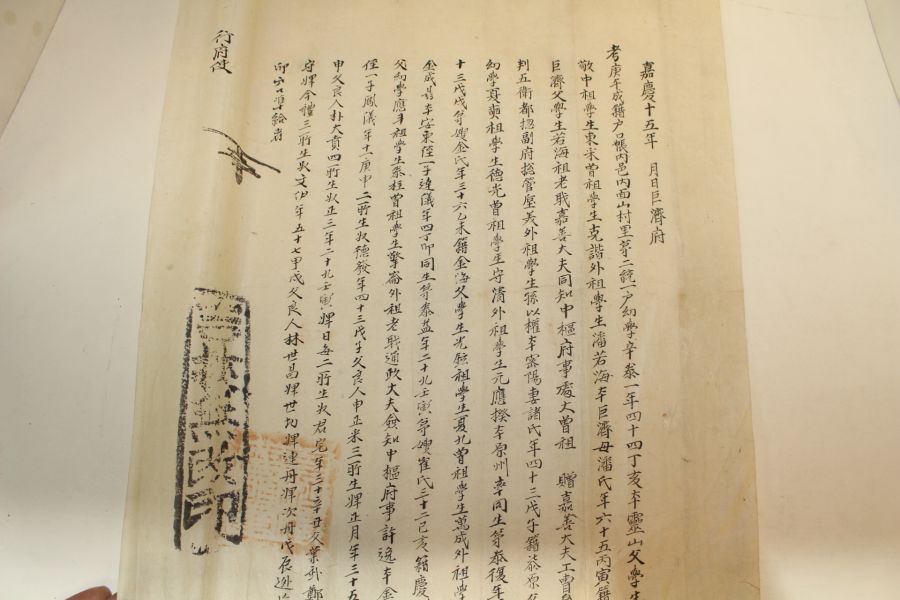 嘉慶十五年 月日巨濟府
考庚午成籍户口帳內邑內面山村里苐二統一户幼學辛泰一年四十四丁亥本靈山父學生
敬中祖學生東采曾祖學生克諧外祖學生潘若海本巨濟母潘氏年六十五丙寅籍
巨濟父學生若海祖老職嘉善大夫同知中樞府事處大曾祖 贈嘉善大夫工曹
判五衛都摠副府摠管 外祖學生孫以權本密陽妻諸氏年四十三戊子籍柒原父
幼學夏 祖學生德光曾祖學生守淸外祖學生元應 本原州率同生苐泰復年
十三戊戌苐嫂金氏年三十六乙未籍金海父學生光 祖學生夏九曾祖學生萬成外祖學
金成 本安東侄一子達儀年四丁卯同生苐泰益年二十九壬寅苐嫂崔氏三十二己亥籍慶
父幼學應 祖學生 柱曾祖學生擎崙外祖老職通政大夫僉知中樞府事許逸本金
侄一子鳳儀年十一庚申二所生奴德發年四十三戊子父良人申正采三所生婢正月年三十五
申父良人朴大賁四所生奴正三年二十九壬寅婢日每二所生奴君宅年三十 父葉孫鄭
守婢今禮三所生奴文 年五十七甲戌父良人林世昌婢世功婢連丹婢次丹戊辰逃
印 口凖給者
行府使
無改印